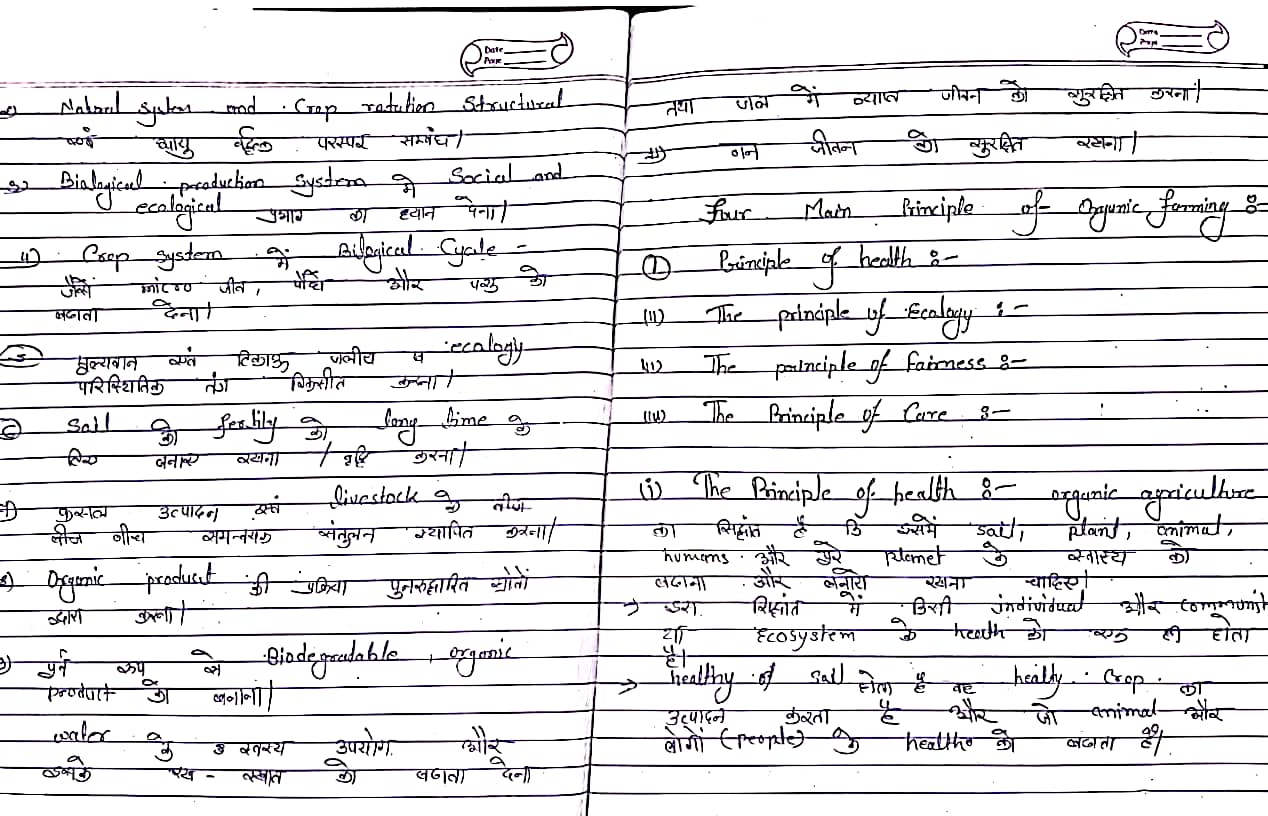 Natural System and Crop rotation Structural
एवं वायु परस्पर सम्बंध।
Bialogical production System मे Social and
ecological प्रभाव का ध्यान देना।
4) Crop System में Bilogical Cycle -
जैसे micro जीव, पौधे और पशु को
बढावा देना।
मूल्यवान एवं टिकाऊ जलीय व ecology
परिस्थितिक तंत्र विकसीत करना।
Sail की fertily को long time के
लिए बनाए रखना / वृद्धि करना।
फसल उत्पादन एवं livestock के बीज
बीज नीच संतुलन स्थापित करना।
Organic product की प्रक्रिया स्रोतों
द्वारा करना।
पूर्न रूप से Biodegradable, organic
product को बनाना।
water के व स्वस्थ उपयोग और
उसके रख - रखाव को बढावा देना
Date
Page
Date
Page
तथा जल में व्याप्त जीवन को सुरक्षित करना।
जीवन को सुरक्षित रखना।
Four Main Principle of Organic farming :-
① Principle of health :-
(ii) The principle of Ecalogy :-
(iii) The principle of Fairness :-
(iv) The Principle of Care :-
(i) The Principle of health :- organic agriculture
का सिद्धांत है कि इसमें sail, plant, animal,
humans और पूरे Planet के स्वास्थ्य को
बढाना और बनाये रखना चाहिए।
→ इस सिद्धांत में किसी individual और communist
या Ecosystem के health को एक ही होता
है।
→ healthy of Sail होता है वह healty Crop का
उत्पादन करता है और जो animal और
लोगों (People) के health को बढाता है।